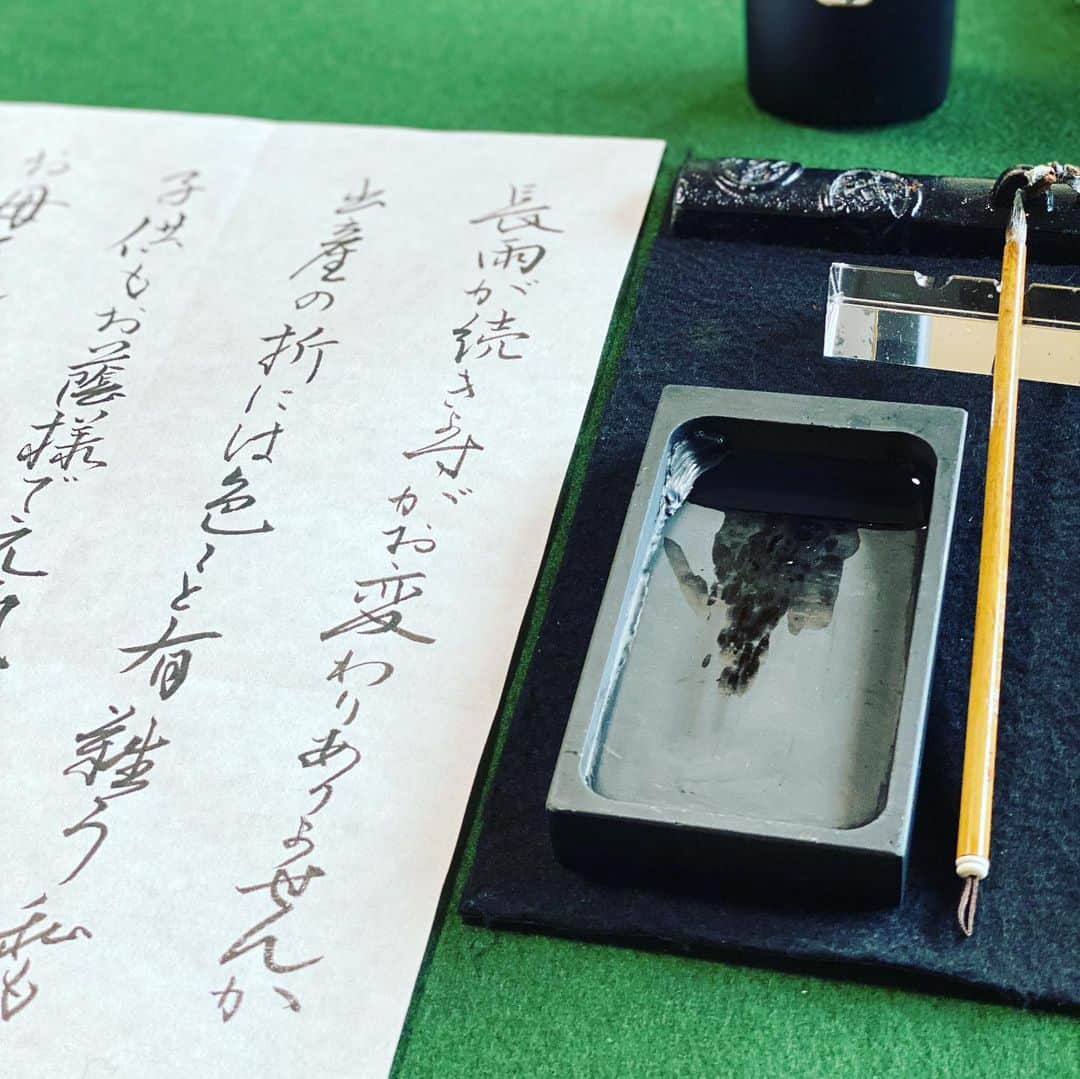 長雨が続きますがお変わりありませんか
出産の折には色々と有難う
子供もお蔭様で元気
私も
お母